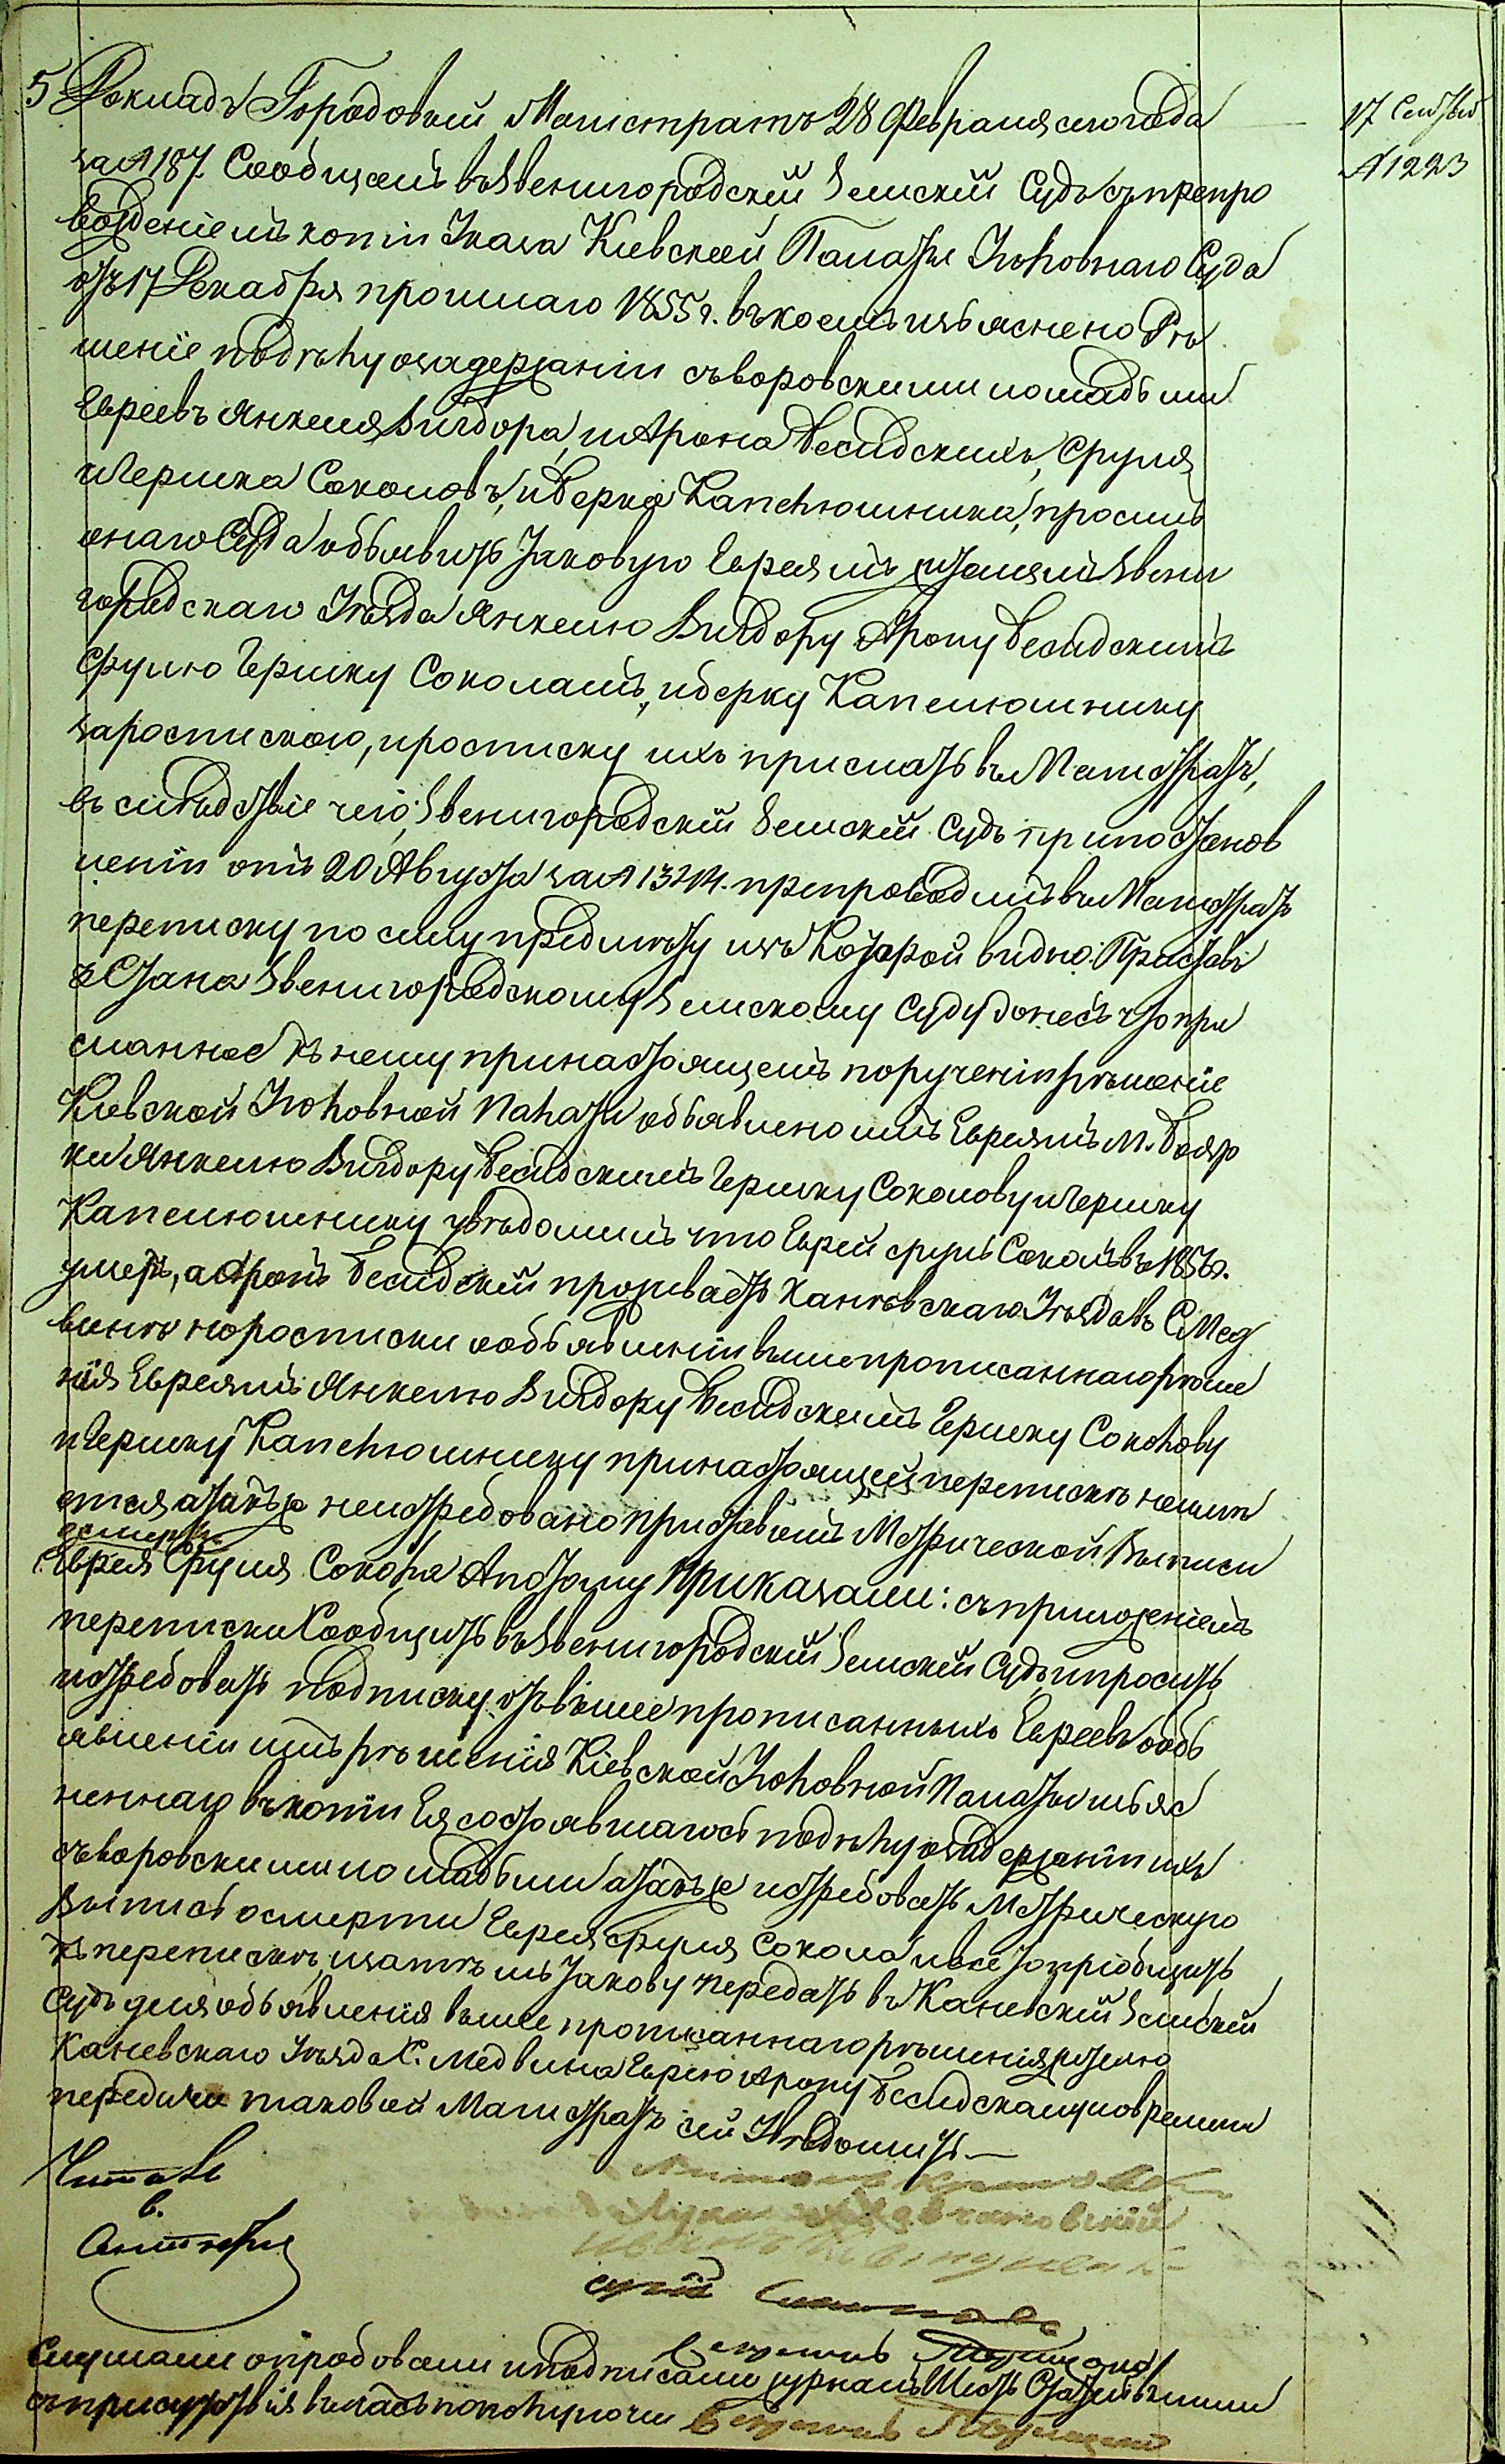 5 Докладъ Городовый Магистратъ 28 Февраля сего года
17 Сентября
за № 187. Сообщаетъ въ Звенигородскій Земскій Судъ съ препро
№ 1223
вожденіемъ копіи Указа Кіевской Палаты Уголовнаго Суда
отъ 17 Декабря прошлаго 1855 г. въ коемъ изъяснено Рѣ
шеніе по дѣлу о задержаніи съ воровскими лошадьми
Евреевъ Янкеля Вигдора, и Арона Бесидскихъ, Сруля
и Гершка Соколовъ, и Берка Капелюшника, просилъ
онаго Суда объявить таковую Евреямъ жителямъ Звени
городскаго Уѣзда Янкелю Вигдору Арону Бесидскимъ
Срулю Гершку Соколамъ, и Берку Капелюшнику
за роспискою, и росписку ихъ прислать въ Магистратъ,
въ слѣдствіе чего, Звенигородскій Земскій Судъ при постанов
леніи отъ 20 Августа за № 13214. препроводилъ въ Магистратъ
переписку по сему предмѣту изъ которой видно: Приставъ
2 Стана Звенигородскому Земскому Суду донесъ что при
сланное къ нему при настоящемъ порученіи рѣшеніе
Кіевской Уголовной Палаты объявлено имъ Евреямъ м. Бояр
ки Янкелю Вигдору Бесидскимъ Гершку Соколову и Гершку
Капелюшнику увѣдомилъ что Еврей Сруль Соколъ въ 185 г.
умеръ, а Аронъ Бесидскій проживаетъ Каневскаго Уѣзда въ С. Мед
винѣ но росписки о объявленіи вышепрописаннаго рѣше
нія Евреямъ Янкелю Вигдору Бесидскимъ Гершку Соколову
и Гершку Капелюшнику при настоящей перепискѣ неимѣ
ется а также неистребовано приставомъ Метрической Выписи
о смерти
Еврея Сруля Сокола А потому Приказали: съ приложеніемъ
переписки Сообщить въ Звенигородскій Земскій Судъ и просить
истребовать подписку отъ вышепрописанныхъ Евреевъ о объ
явленіи имъ рѣшенія Кіевской Уголовной Палаты изъяс
неннаго въ копіи Ея состоявшагось по дѣлу о задержаніи ихъ
съ воровскими лошадьми а также истребовать Метрическую
Выпись о смерти Еврея Сруля Сокола и все то пріобщить
къ перепискѣ, и затѣмъ такову передать въ Каневскій Земскій
Судъ для объявленія вышепрописаннаго рѣшенія жителю
Каневскаго Уѣзда С. Медвина Еврею Арону Бесидскому и о времени
передачи таковой Магистратъ сей Увѣдомить.—
Читалъ
в.
Секретаря
Слушали опробовали и подписали журналъ Шесть Статей вышли
съ присутствія въ часъ пополуночи